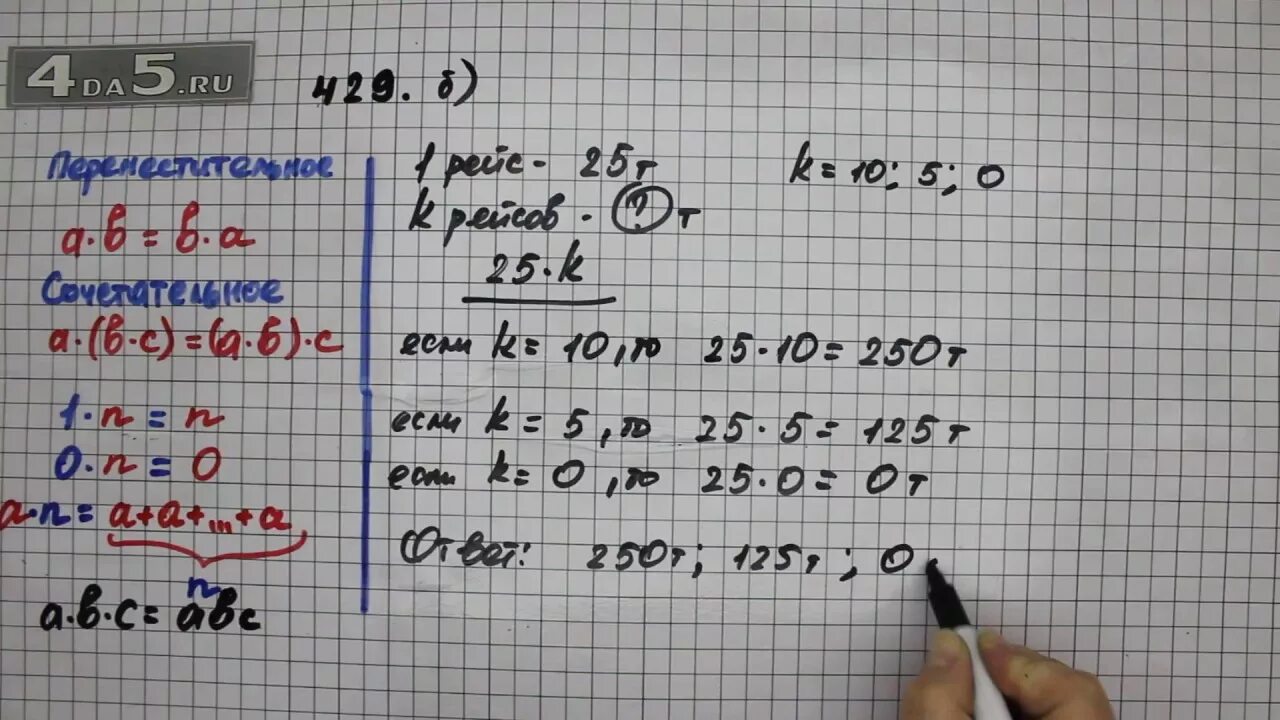 4DA5.RU
429. б)
Переместительное
a·b = b·a
Сочетательное
a·(b·c)=(a·б)·c
1·n = n
0·n = 0
a·n = a+a+...+a
n
a·b·c = abc
1 рейс - 25т
k = 10; 5; 0
k рейсов - ? т
25·k
если k = 10, то 25·10 = 250т
если k = 5, то 25·5 = 125т
если k = 0, то 25·0 = 0т
Ответ: 250т; 125т; 0